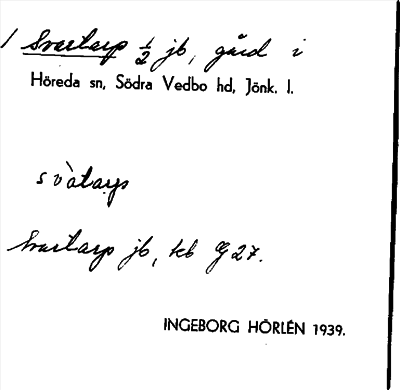 1 Svartarp ½ jb, gård i
Höreda sn, Södra Vedbo hd, Jönk. l.
svàtarp
Svartarp jb, kb G 27.
INGEBORG HÖRLÉN 1939.